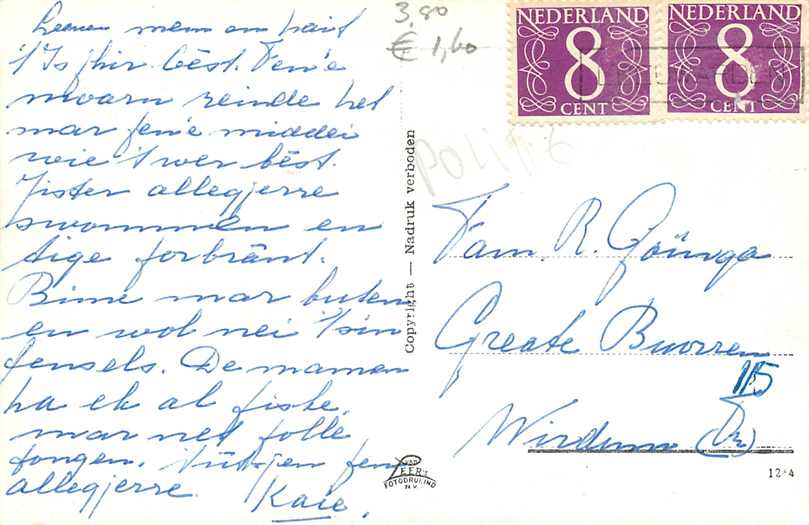 Leauwe mem en heit
't Is hjir bêst. Fen'e
moarn reinde het
mar fen'e middei
wie 't wer bêst.
Jister allegjerre
swommen en
tige forbrânt.
Binne mar buten
en wol nei 't sin
fensels. De mannen
ha ek al fiske,
mar net folle
fongen. Tútsjen fen
allegjerre. Kaie.
3.80
€ 1,60
NEDERLAND
8
CENT
NEDERLAND
8
CENT
Copyright — Nadruk verboden
Fam. R. Goïnga
Greate Buorren
115
Wirdum (Fr.)
VAN LEER'S
FOTODRUK-IND
N.V.
12*4